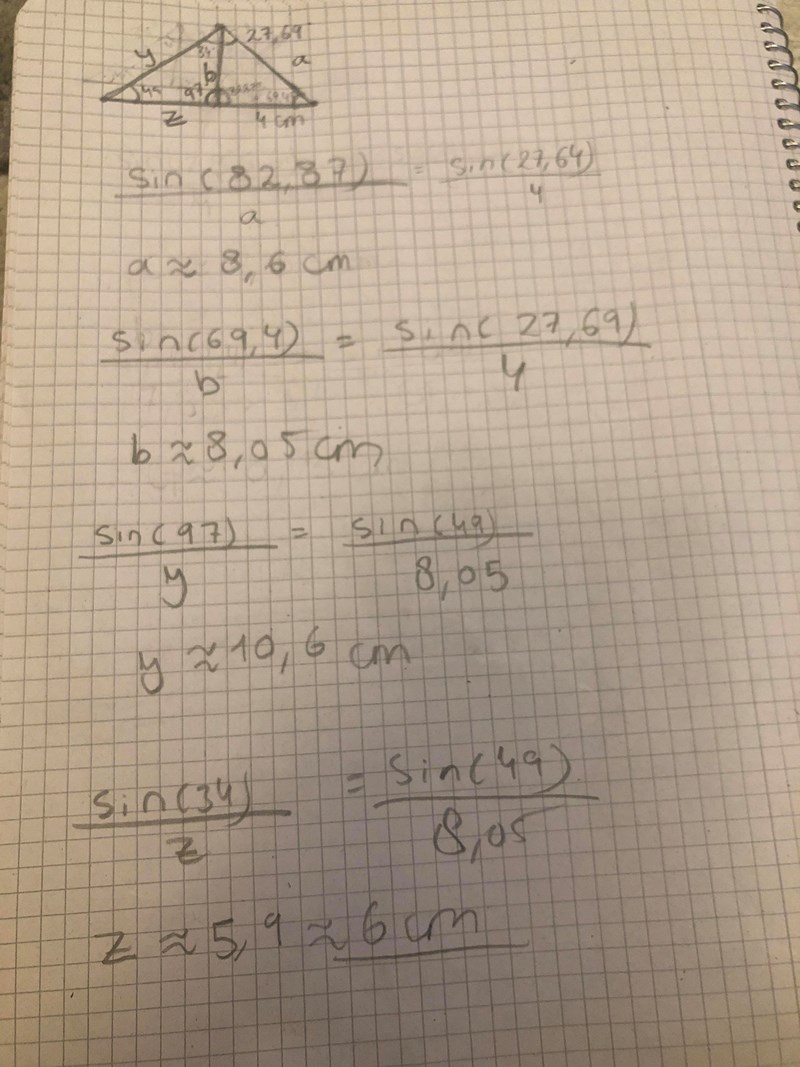 27,69
y
34
b
a
49
97
z
4 cm
sin(82,87) / a = sin(27,64) / 4
a ≈ 8,6 cm
sin(69,4) / b = sin(27,69) / 4
b ≈ 8,05 cm
sin(97) / y = sin(49) / 8,05
y ≈ 10,6 cm
sin(34) / z = sin(49) / 8,05
z ≈ 5,9 ≈ 6 cm